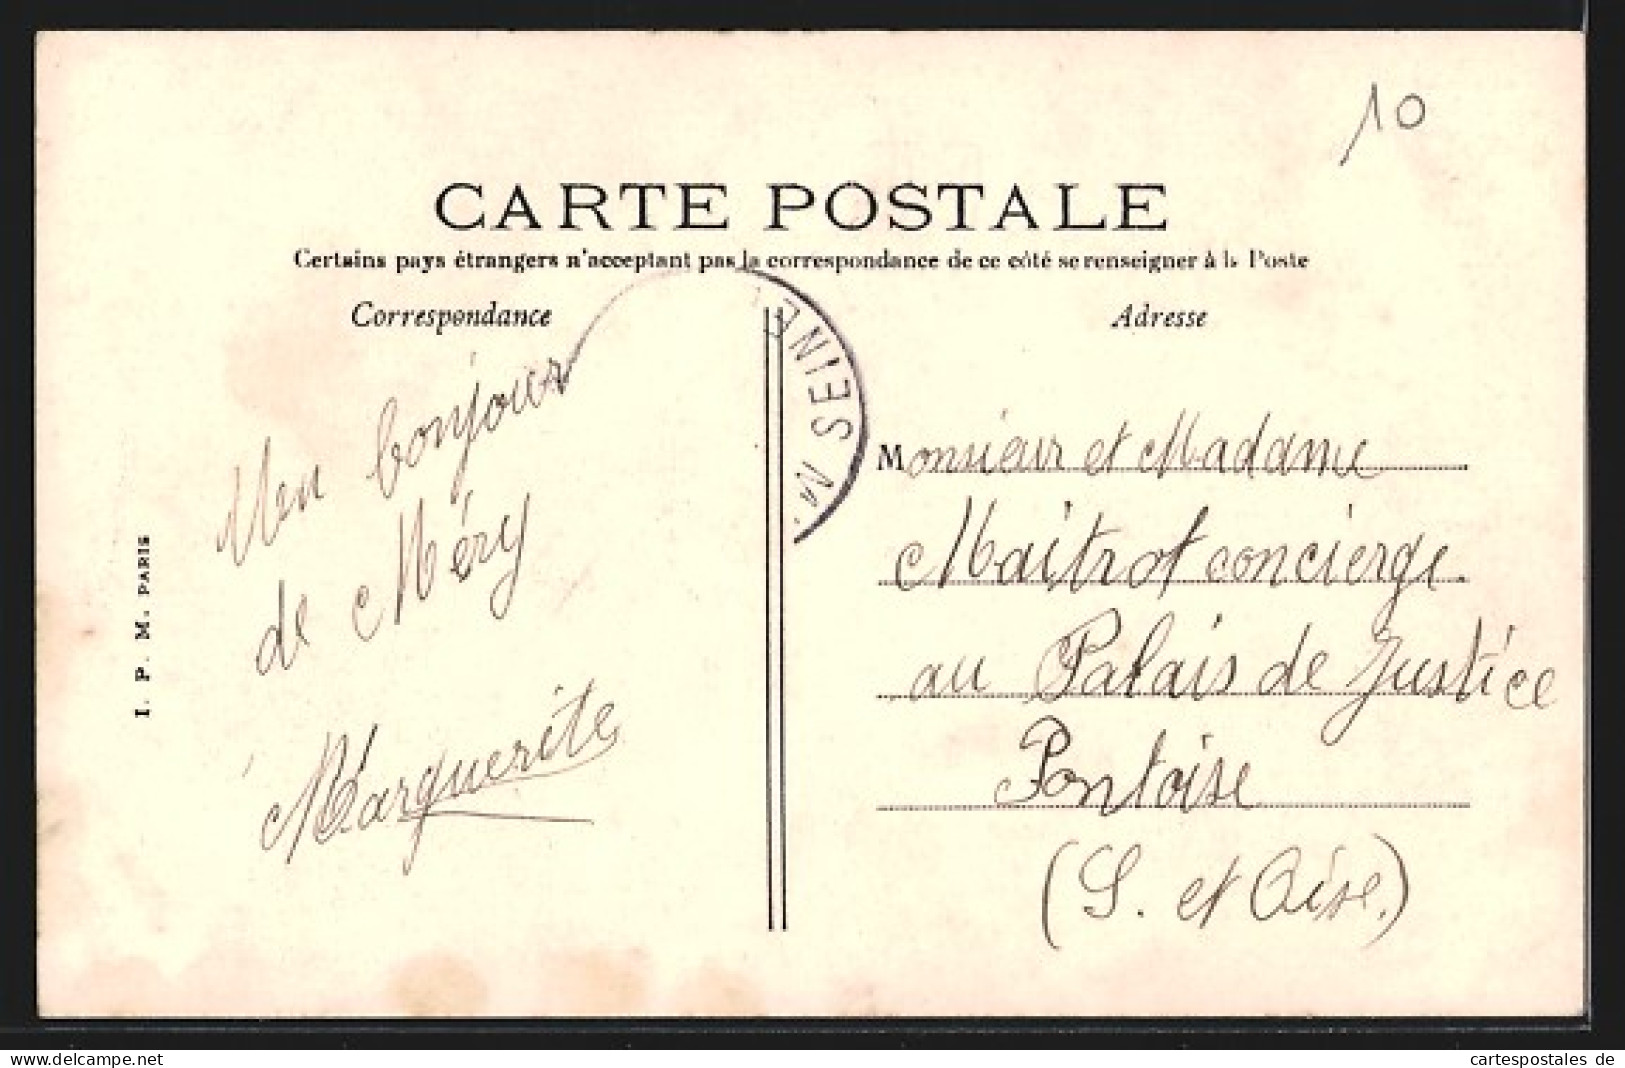 10
CARTE POSTALE
Certains pays étrangers n'acceptant pas la correspondance de ce côté se renseigner à la Poste
Correspondance
Mon bonjour
de Méry
Marguerite
I. P. M. PARIS
SEINE M.
Adresse
Monsieur et Madame
Maitrot concierge.
au Palais de Justice
Pontoise
(S. et Oise.)
www.delcampe.net
cartespostales de